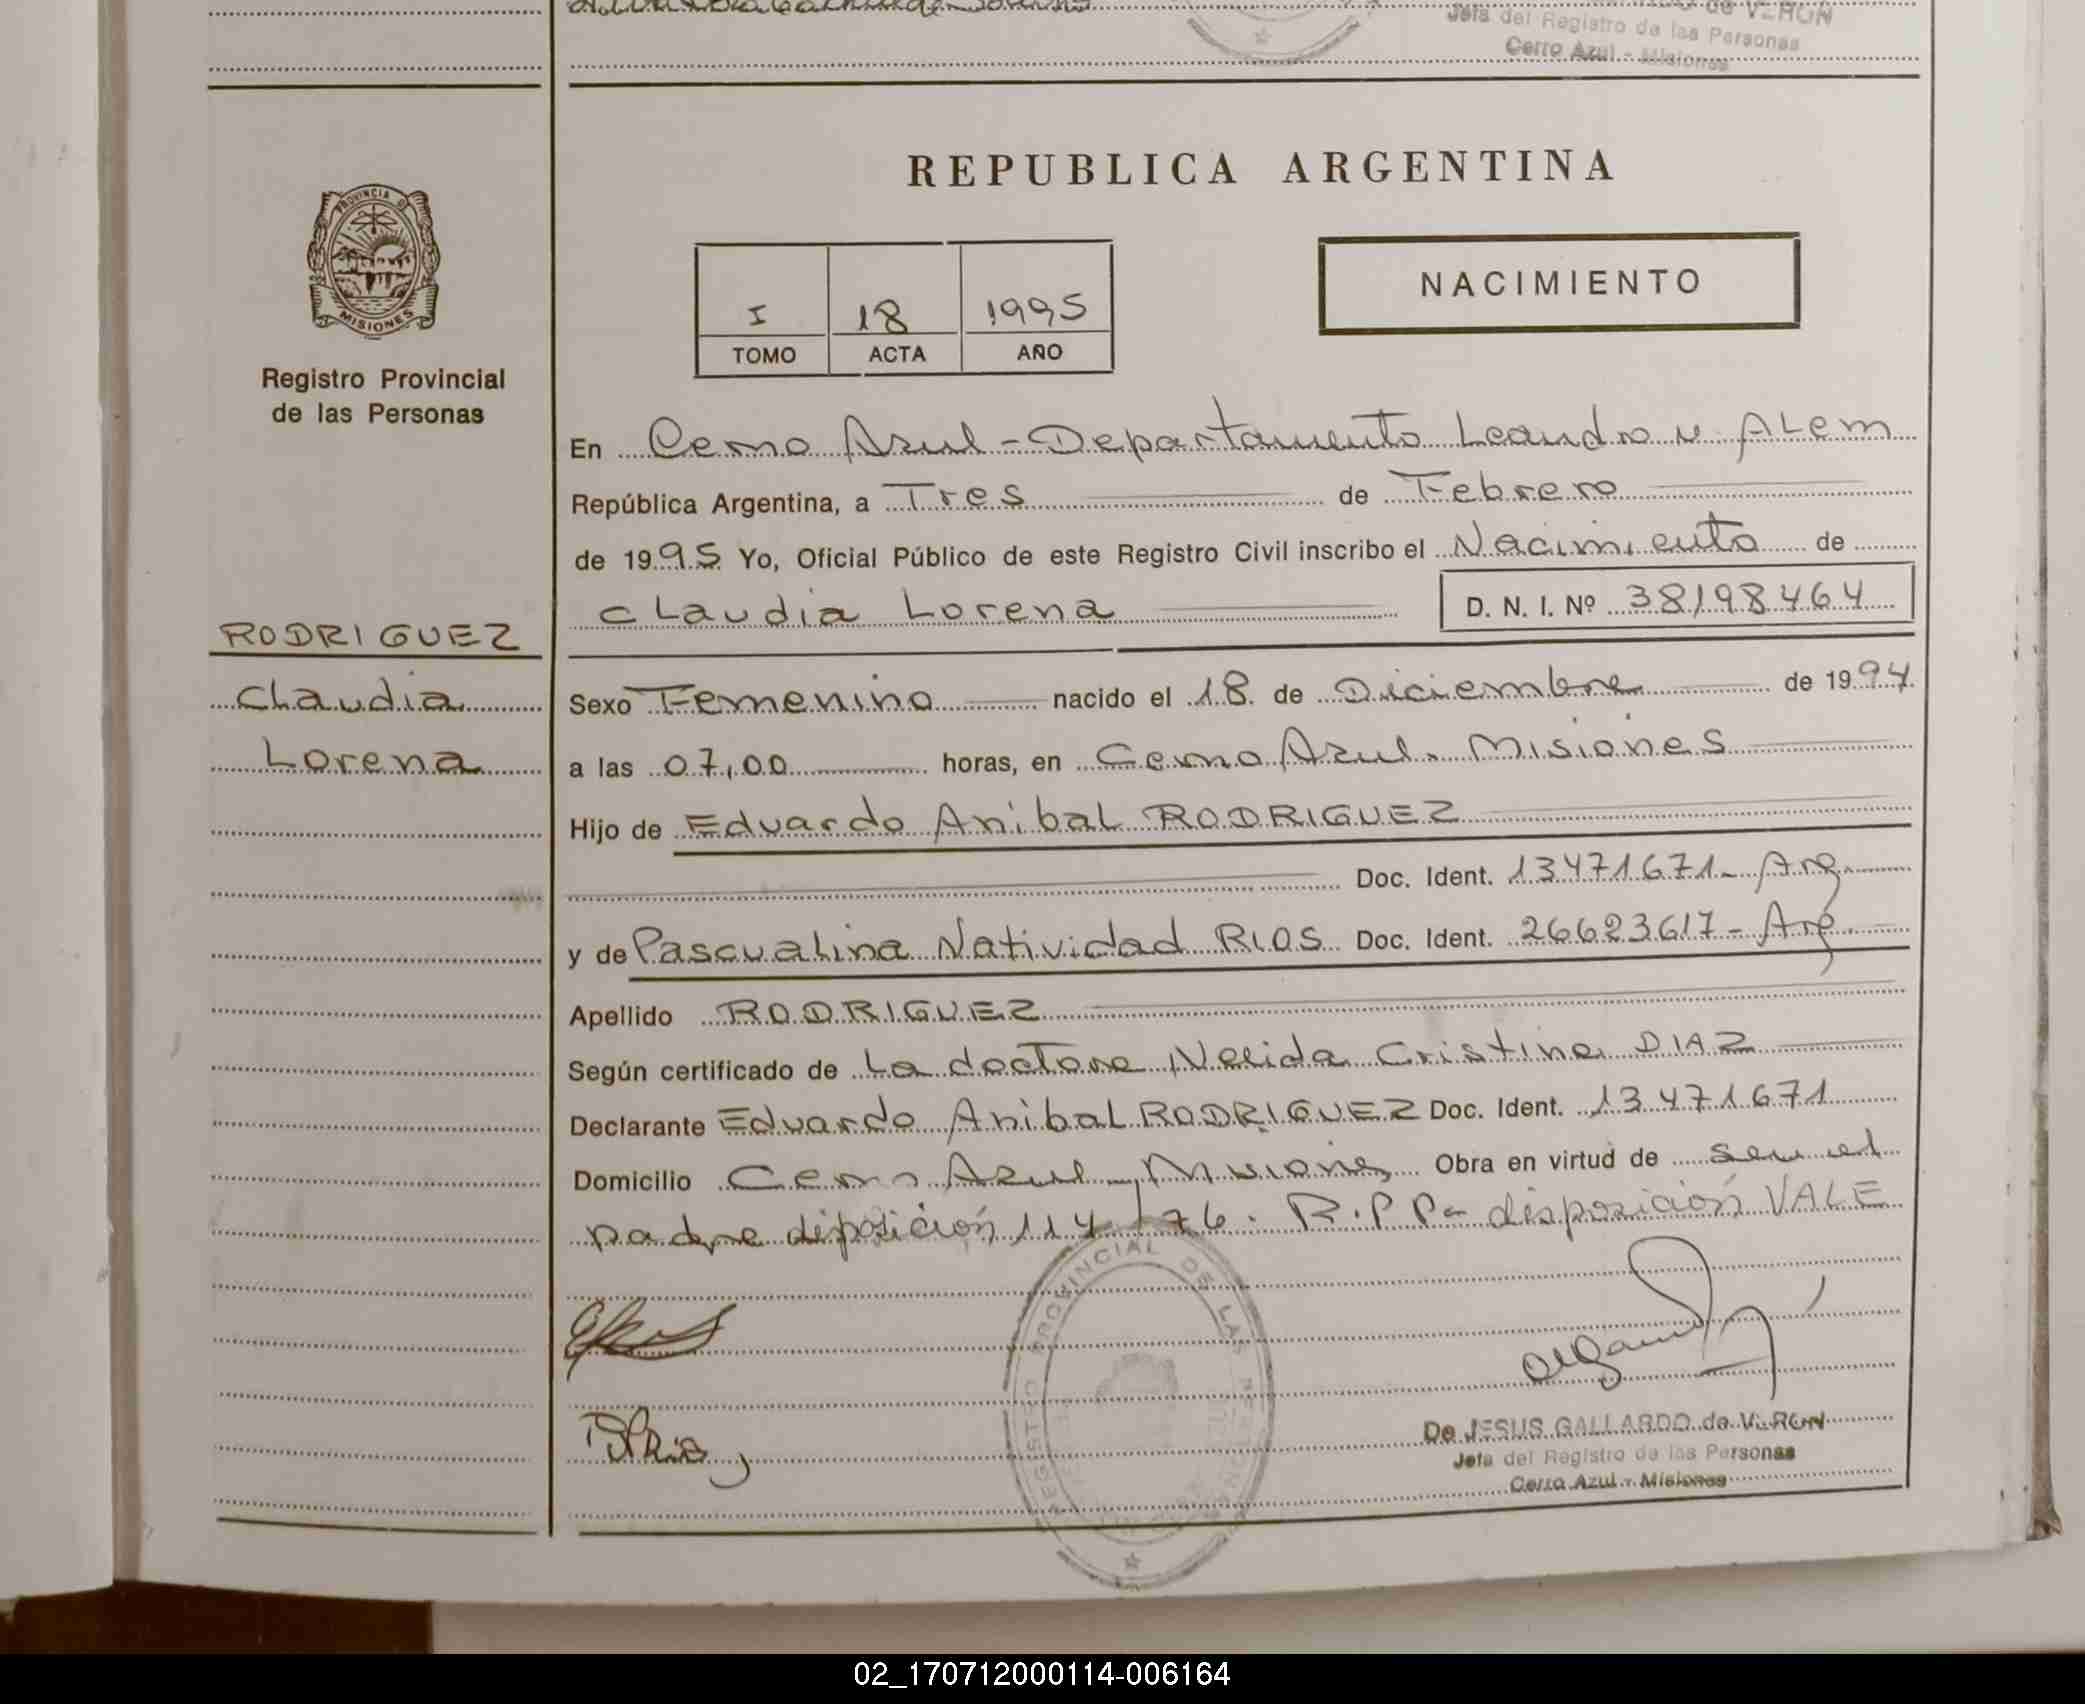 de VERON
Jefa del Registro de las Personas
Cerro Azul - Misiones
REPUBLICA ARGENTINA
PROVINCIA D
MISIONES
Registro Provincial
de las Personas
I 18 1995
TOMO ACTA AÑO
NACIMIENTO
En Cerro Azul - Departamento Leandro N. ALem
República Argentina, a Tres de Febrero
de 1995 Yo, Oficial Público de este Registro Civil inscribo el Nacimiento de
CLaudia Lorena D. N. I. Nº 38198464
RODRIGUEZ
CLaudia
Lorena
Sexo Femenino nacido el 18 de Diciembre de 1994
a las 07,00 horas, en Cerro Azul. Misiones
Hijo de Eduardo Anibal RODRIGUEZ
Doc. Ident. 13471671- Arg.
y de Pascualina Natividad RIOS Doc. Ident. 26623617- Arg.
Apellido RODRIGUEZ
Según certificado de La doctora Nelida Cristina DIAZ
Declarante Eduardo Anibal RODRIGUEZ Doc. Ident. 13471671
Domicilio Cerro Azul Misiones Obra en virtud de ser el
padre diposición 114/76. R.P.P- disposición VALE
REGISTRO PROVINCIAL DE LAS PERSONAS
De JESUS GALLARDO de VERON
Jefa del Registro de las Personas
Cerro Azul - Misiones
02_170712000114-006164